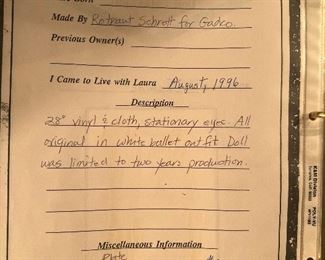 Made By Rotraut Schrott for Gadco.
Previous Owner(s)
I Came to Live with Laura August, 1996
Description
28" vinyl & cloth, stationary eyes. All
original in white ballet outfit Doll
was limited to two years production.
Miscellaneous Information